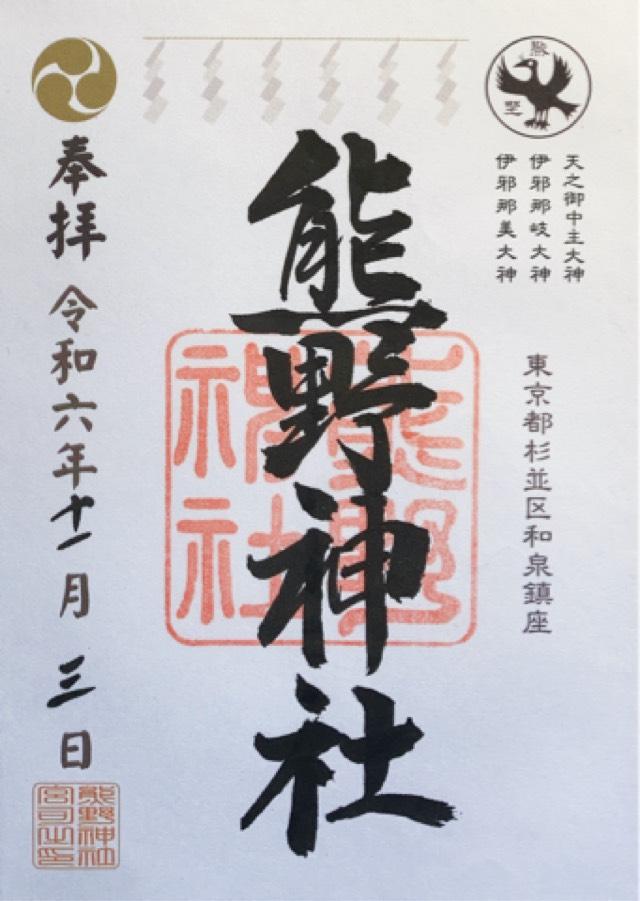 熊野
天之御中主大神
伊邪那岐大神
伊邪那美大神
東京都杉並区和泉鎮座
熊野神社
熊野神社
奉拝 令和六年十一月三日
熊野神社宮司之印